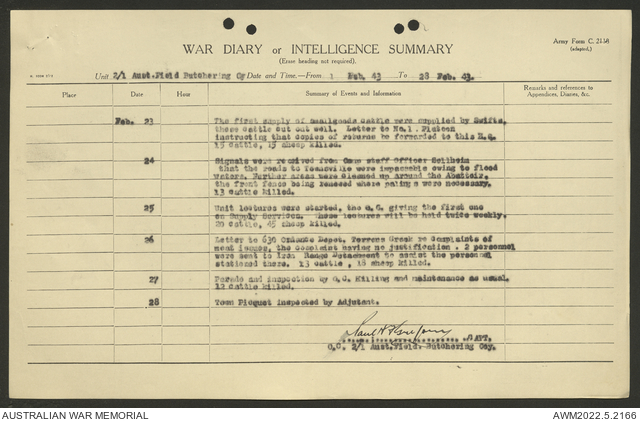 Army Form C. 2118
(adapted.)
WAR DIARY or INTELLIGENCE SUMMARY
(Erase heading not required).
Unit 2/1 Aust.Field Butchering Cy Date and Time.—From 1 Feb. 43 To 28 Feb. 43.
Place Date Hour Summary of Events and Information Remarks and references to
Appendices, Diaries, &c.
Feb. 23 The first supply of smallgoods cattle were supplied by Swifts,
these cattle cut out well. Letter to No.1. Platoon
instructing that copies of returns be forwarded to this H.Q.
15 cattle, 15 sheep killed.
24 Signals were received from Camp staff Officer Sellheim
that the roads to Townsville were impassable owing to flood
waters. Further areas were cleaned up around the Abattoir,
the front fence being renewed where palings were necessary.
13 cattle killed.
25 Unit lectures were started, the O.C. giving the first one
on Supply Services. These lectures will be held twice weekly.
20 cattle, 45 sheep killed.
26 Letter to 630 Ordnance Depot, Torrens Creek re Complaints of
meat issues, the complaint having no justification. 2 personnel
were sent to Iron Range Detachment to assist the personnel
stationed there. 13 cattle, 18 sheep killed.
27 Parade and inspection by O.C. Killing and maintenance as usual.
12 cattle killed.
28 Town Picquet inspected by Adjutant.
CAPT.
O.C. 2/1 Aust.Field. Butchering Coy.
AUSTRALIAN WAR MEMORIAL AWM2022.5.2166